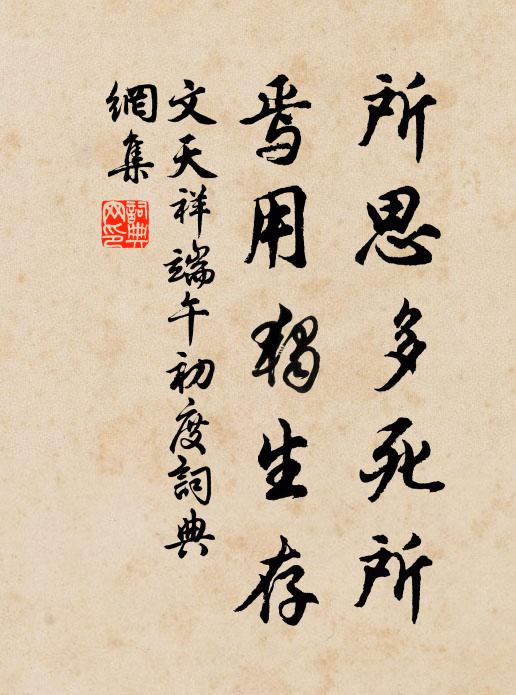 所思多死所
焉用獨生存
文天祥端午初度詞典
網集
詞典网印